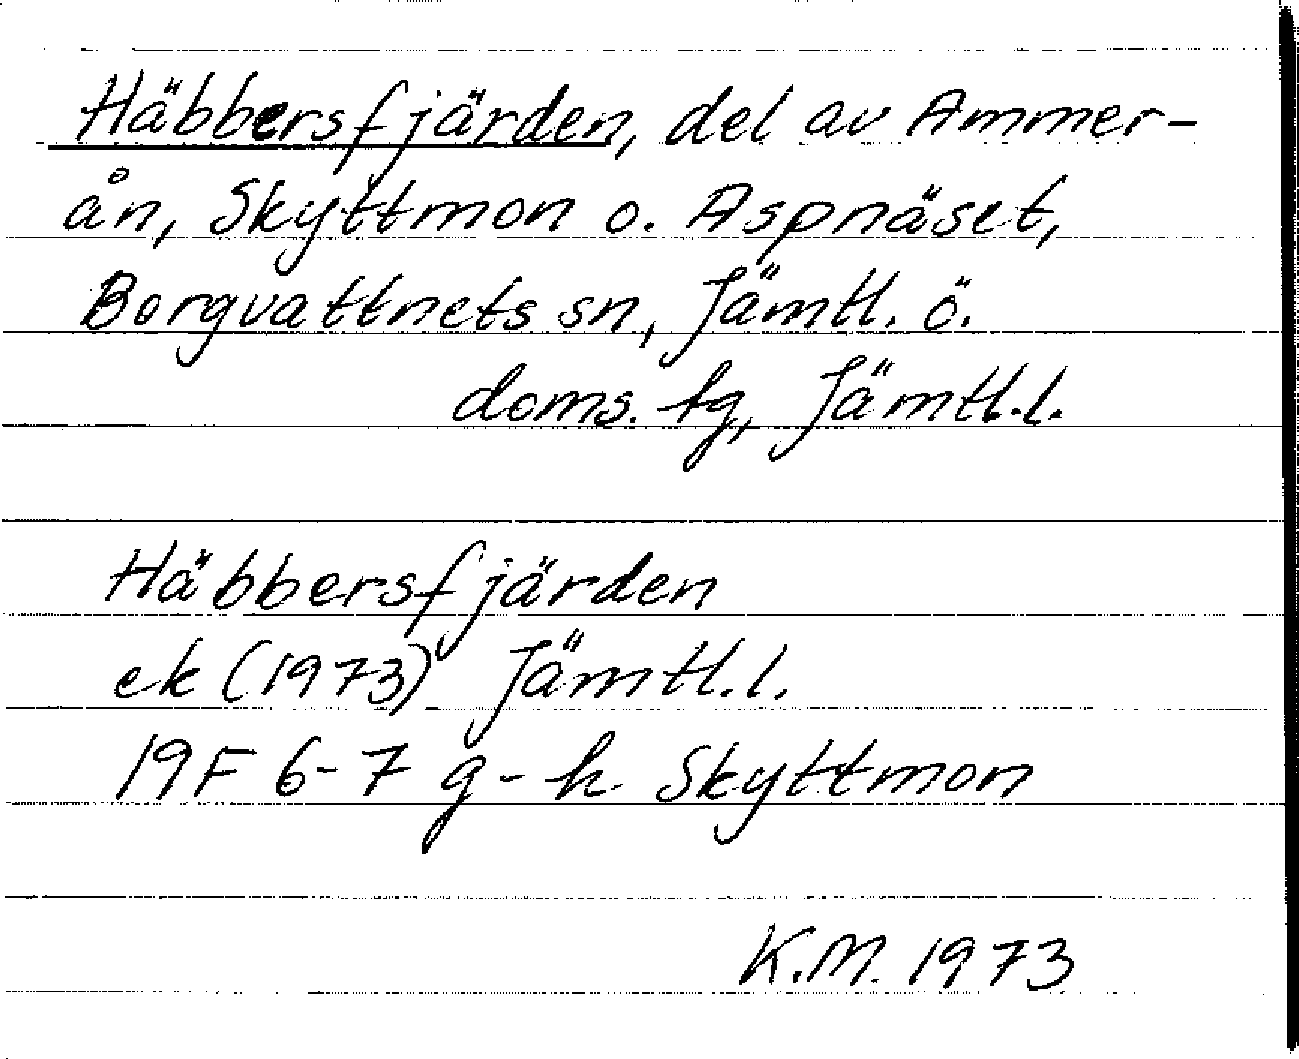 Häbbersfjärden, del av Ammer-
ån, Skyttmon o. Aspnäset,
Borgvattnets sn, Jämtl. ö.
doms. tg, Jämtl.l.
Häbbersfjärden
ek (1973) Jämtl.l.
19F 6-7 g-h Skyttmon
K.M. 1973